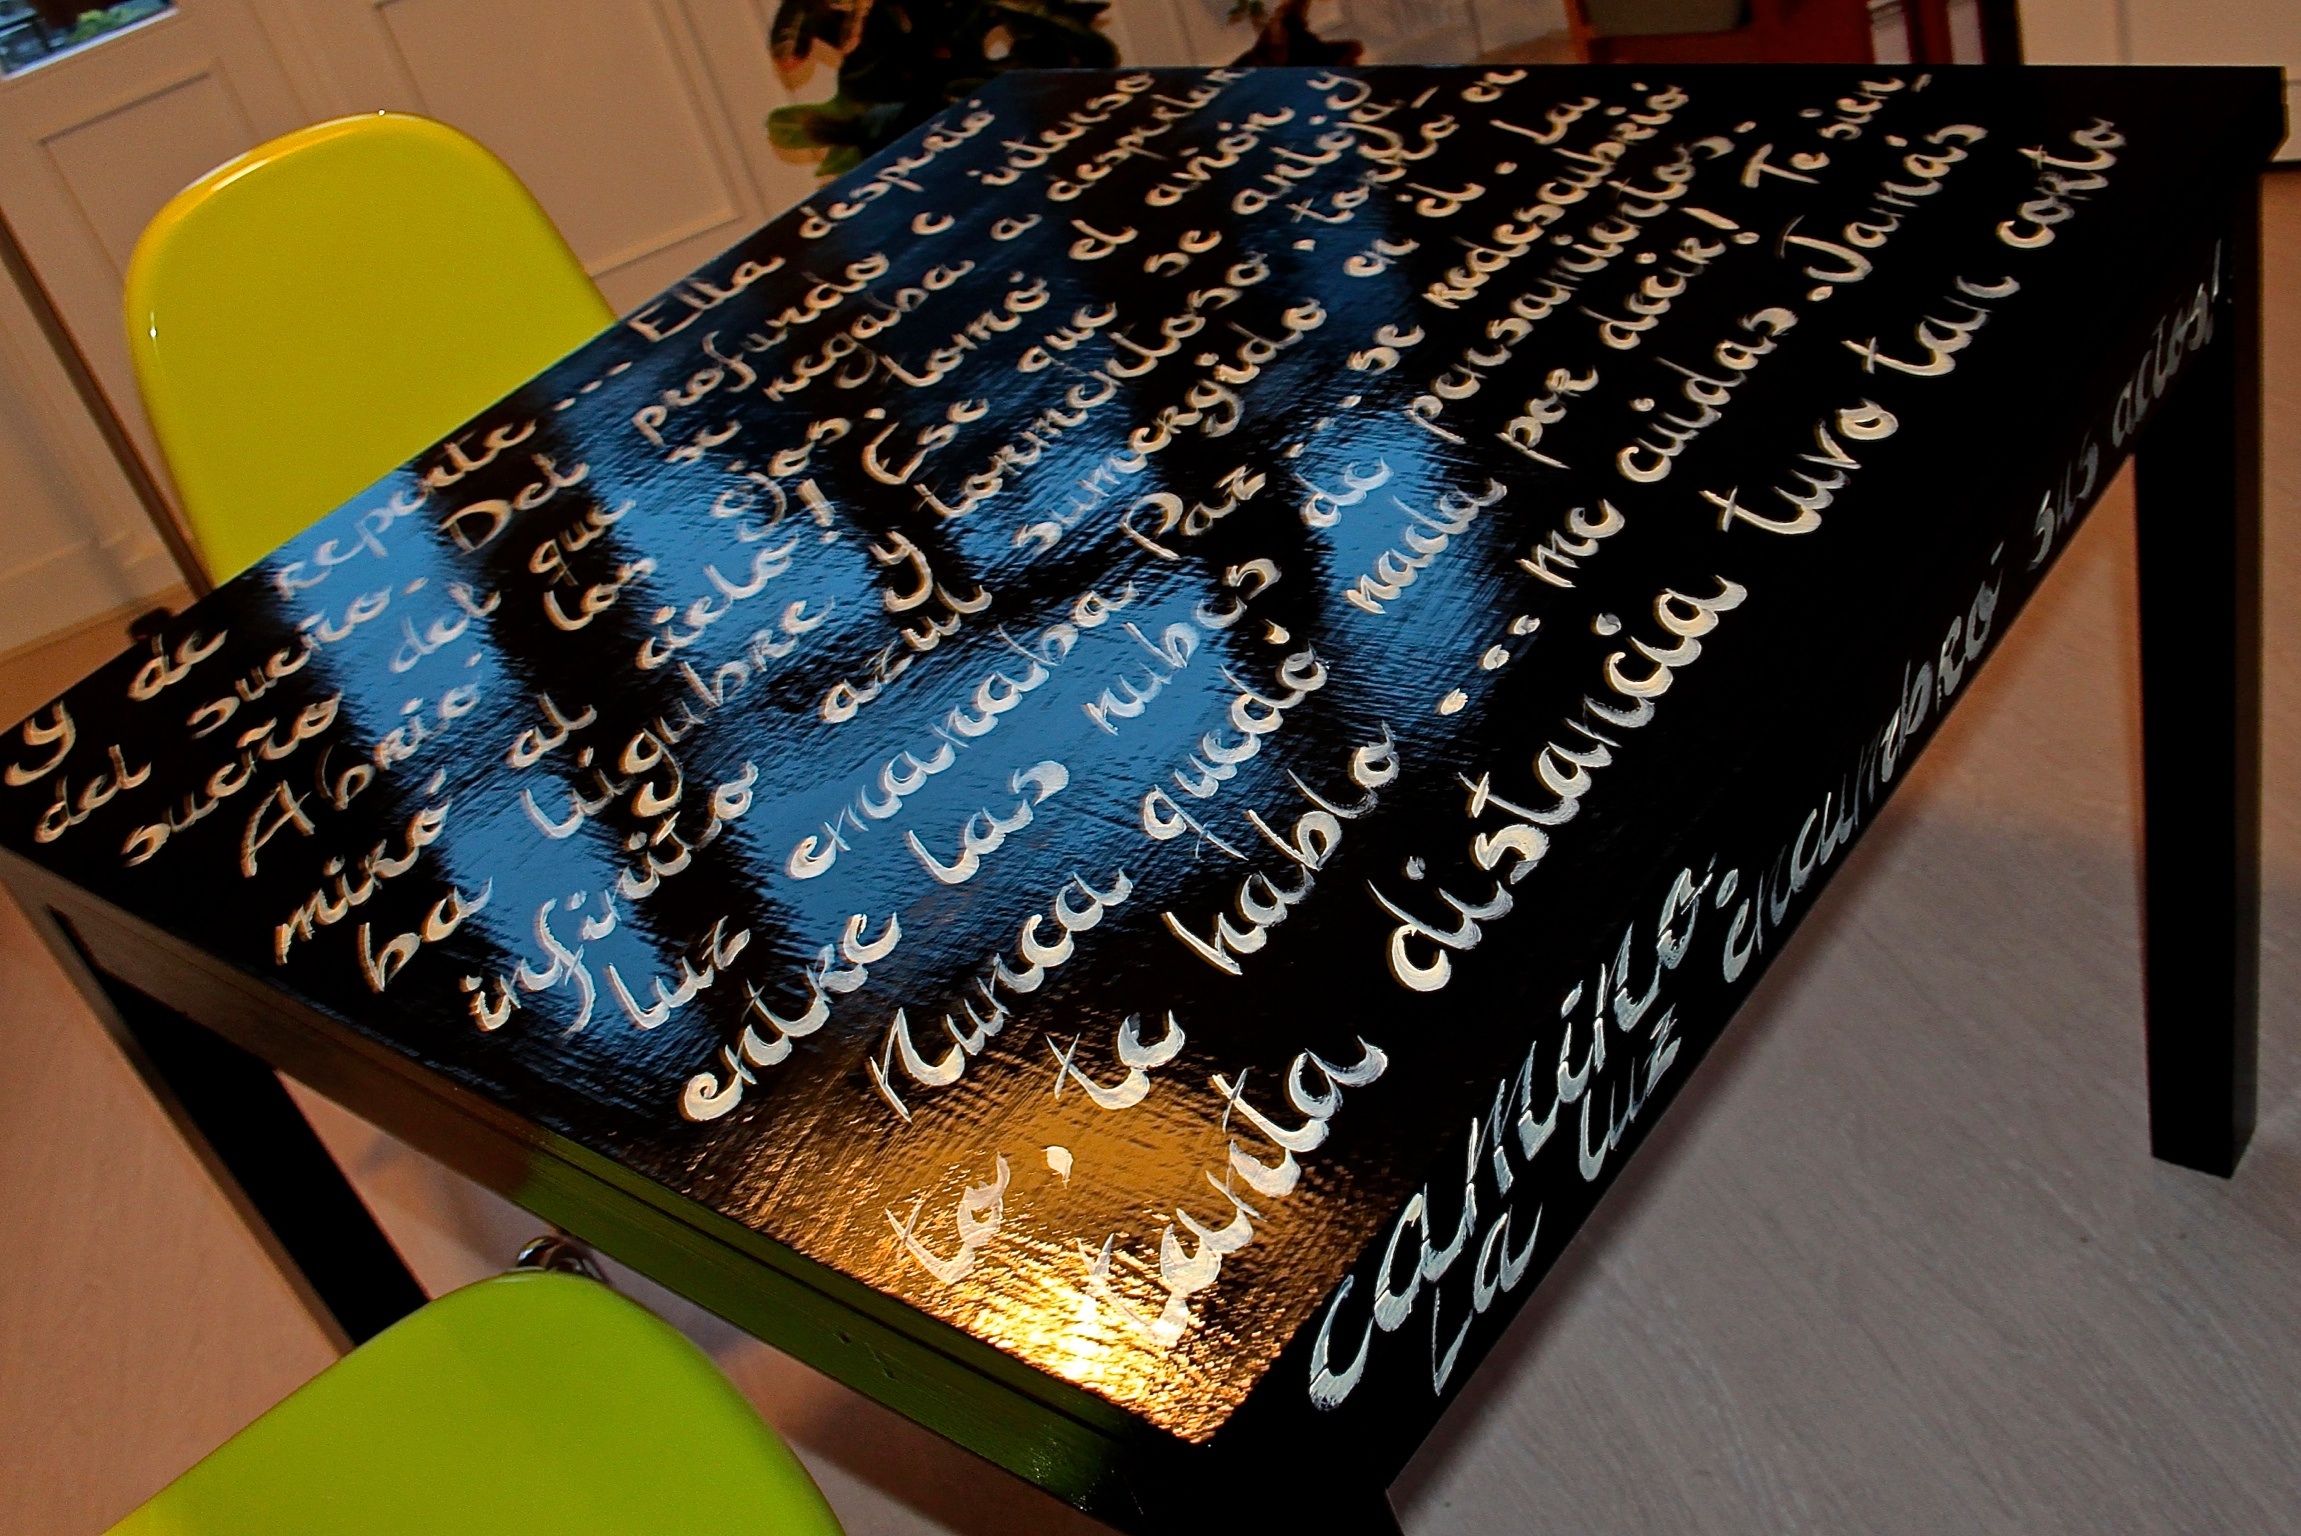 y de repente... Ella despretó
del sueño. Del profundo e intenso
sueño del que se negaba a despertar
Abrió los ojos. tomó el avión y
miró al cielo! Ese que se antoja-
ba lúgubre y tormentoso. en
infinito azul sumergido en él. La
luz emanaba Paz... se redescubrió
entre las nubes de pensamientos.
Nunca quedó nada por decir! Te sien-
to. te hablo..... me cuidas. Jamás
tanta distancia tuvo tan corta
camino.
La luz encumbró sus actos!